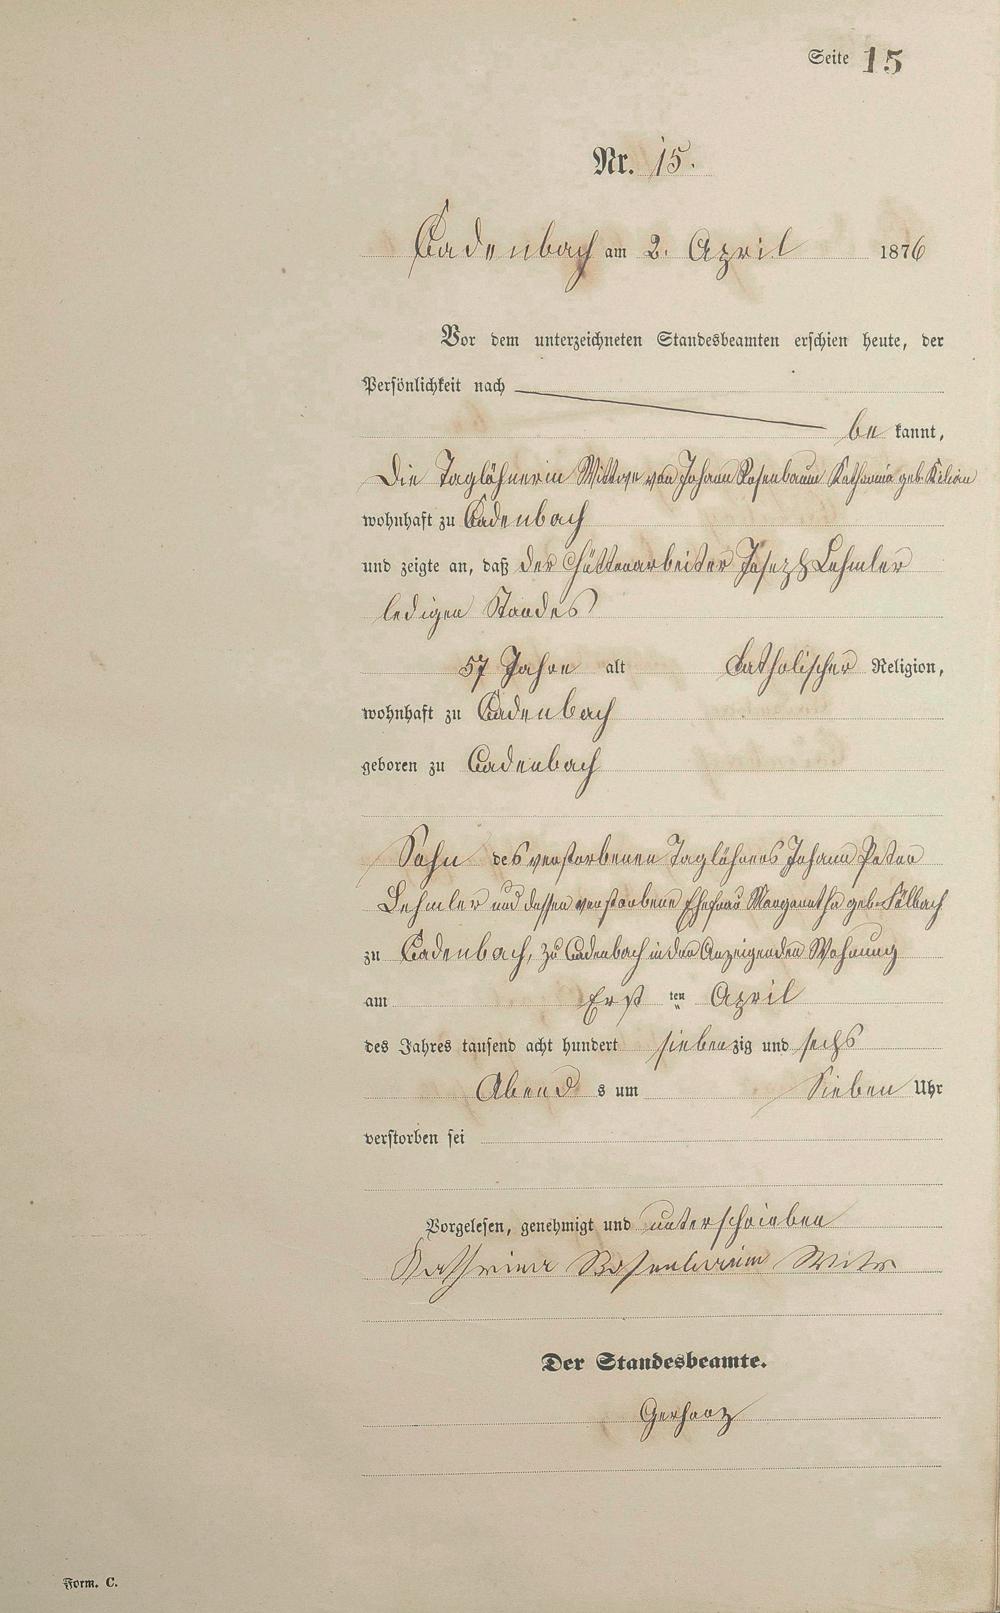 Seite 15
Nr. 15.
Cadenbach am 2. April 1876
Vor dem unterzeichneten Standesbeamten erschien heute, der
Persönlichkeit nach
be kannt,
Die Taglöhnerin Wittwe von Johann Rosenbaum Katharina geb. Kilian
wohnhaft zu Cadenbach
und zeigte an, daß der Hüttenarbeiter Joseph Lehmler
ledigen Standes
57 Jahre alt katholischer Religion,
wohnhaft zu Cadenbach
geboren zu Cadenbach
Sohn des verstorbenen Taglöhners Johann Peter
Lehmler und dessen verstorbene Ehefrau Margaretha geb.
zu Cadenbach, zu Cadenbach in der Anzeigenden Wohnung
am Erst ten April
des Jahres tausend acht hundert siebenzig und sechs
Abend s um Sieben Uhr
verstorben sei
Vorgelesen, genehmigt und unterschrieben
Kathrina Rosenbaum Witw
Der Standesbeamte.
Gerharz
Form. C.